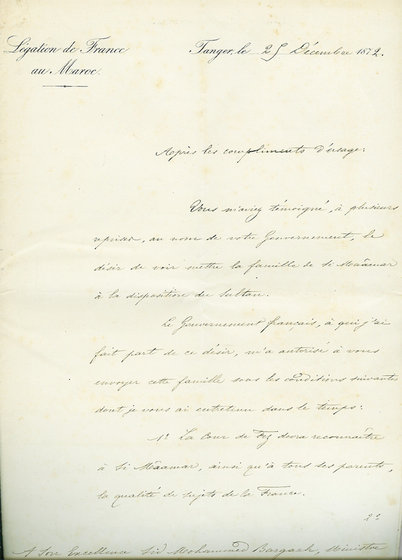 Légation de France
au Maroc.
Tanger, le 25 Décembre 1872.
Après les compliments d'usage:
Vous m'aviez témoigné, à plusieurs
reprises, au nom de votre Gouvernement, le
désir de voir mettre la famille de Si Maâmar
à la disposition du Sultan.
Le Gouvernement français, à qui j'ai
fait part de ce désir, m'a autorisé à vous
envoyer cette famille sous les conditions suivantes
dont je vous ai entretenu dans le temps:
1º La Cour de Fez devra reconnaître
à Si Maâmar, ainsi qu'à tous ses parents,
la qualité de sujets de la France.
2º
A Son Excellence Sid Mohammed Bargach, Ministre